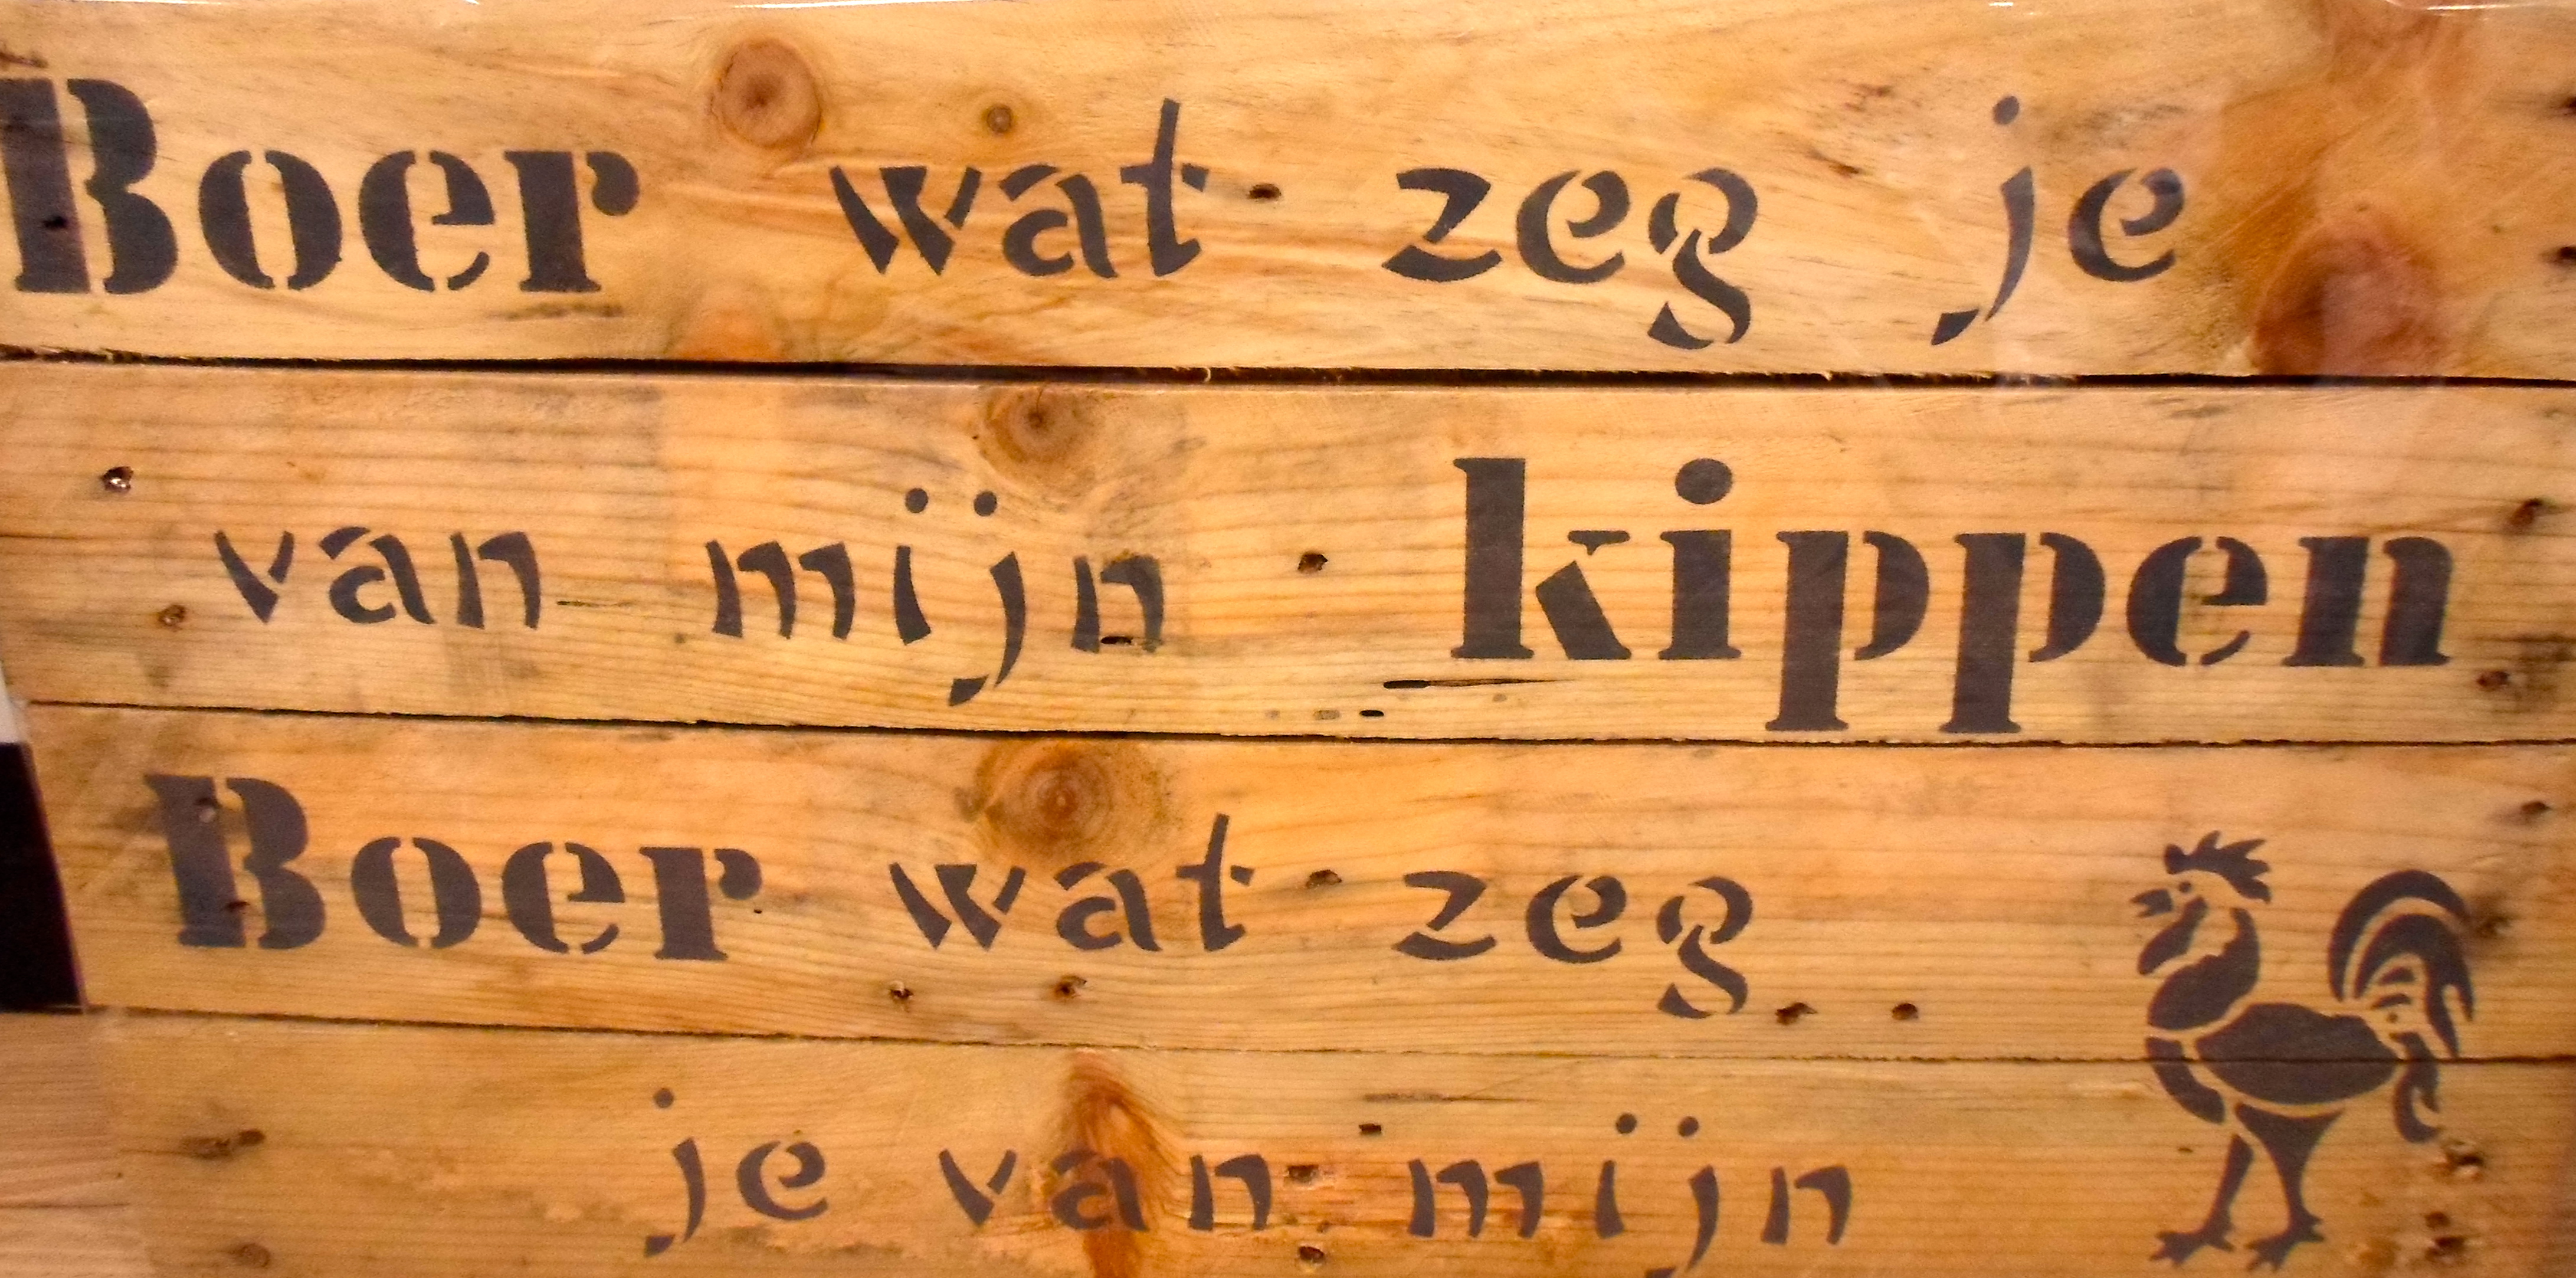 Boer wat zeg je
van mijn kippen
Boer wat zeg
je van mijn